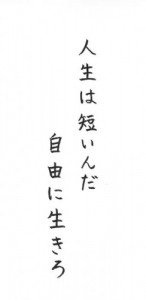 人生は短いんだ
自由に生きろ